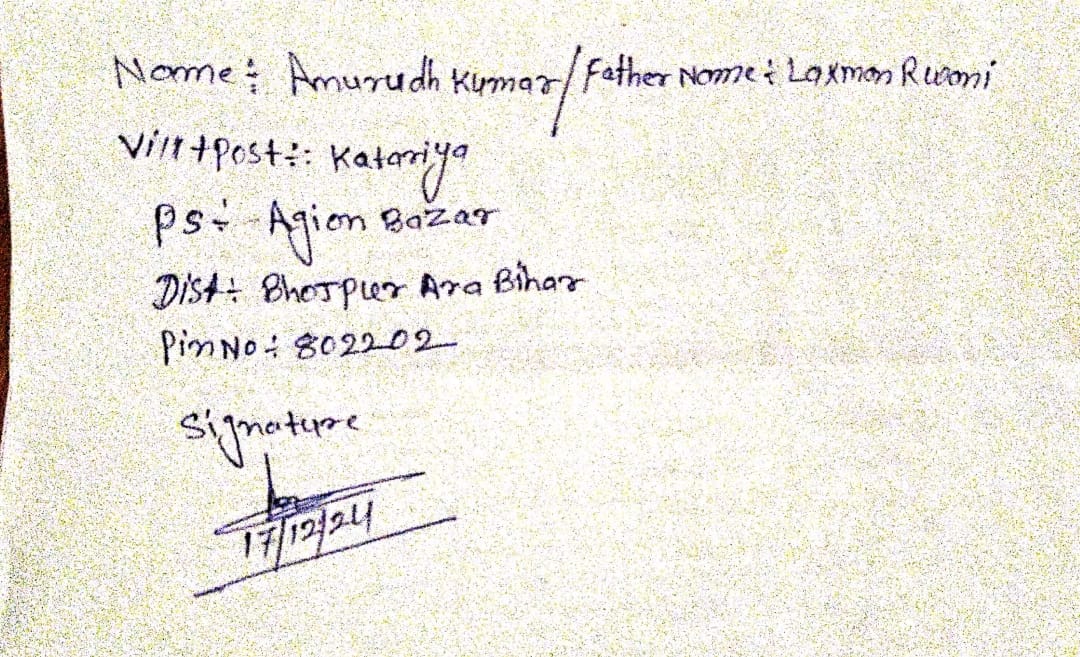 Name :- Anurudh Kumar / Father Name :- Laxman Rwani
Vill+post :- Katariya
PS :- Agion Bazar
Dist :- Bhojpur Ara Bihar
Pin No :- 802202
Signature
17/12/24